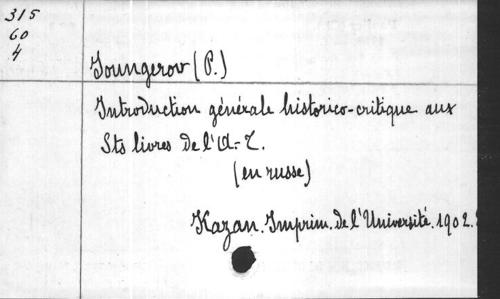 315
60
4
Joungerov (P.)
Introduction générale historico-critique aux
Sts livres de l'A.-T.
(en russe)
Kazan. Imprim. de l'Université. 1902.